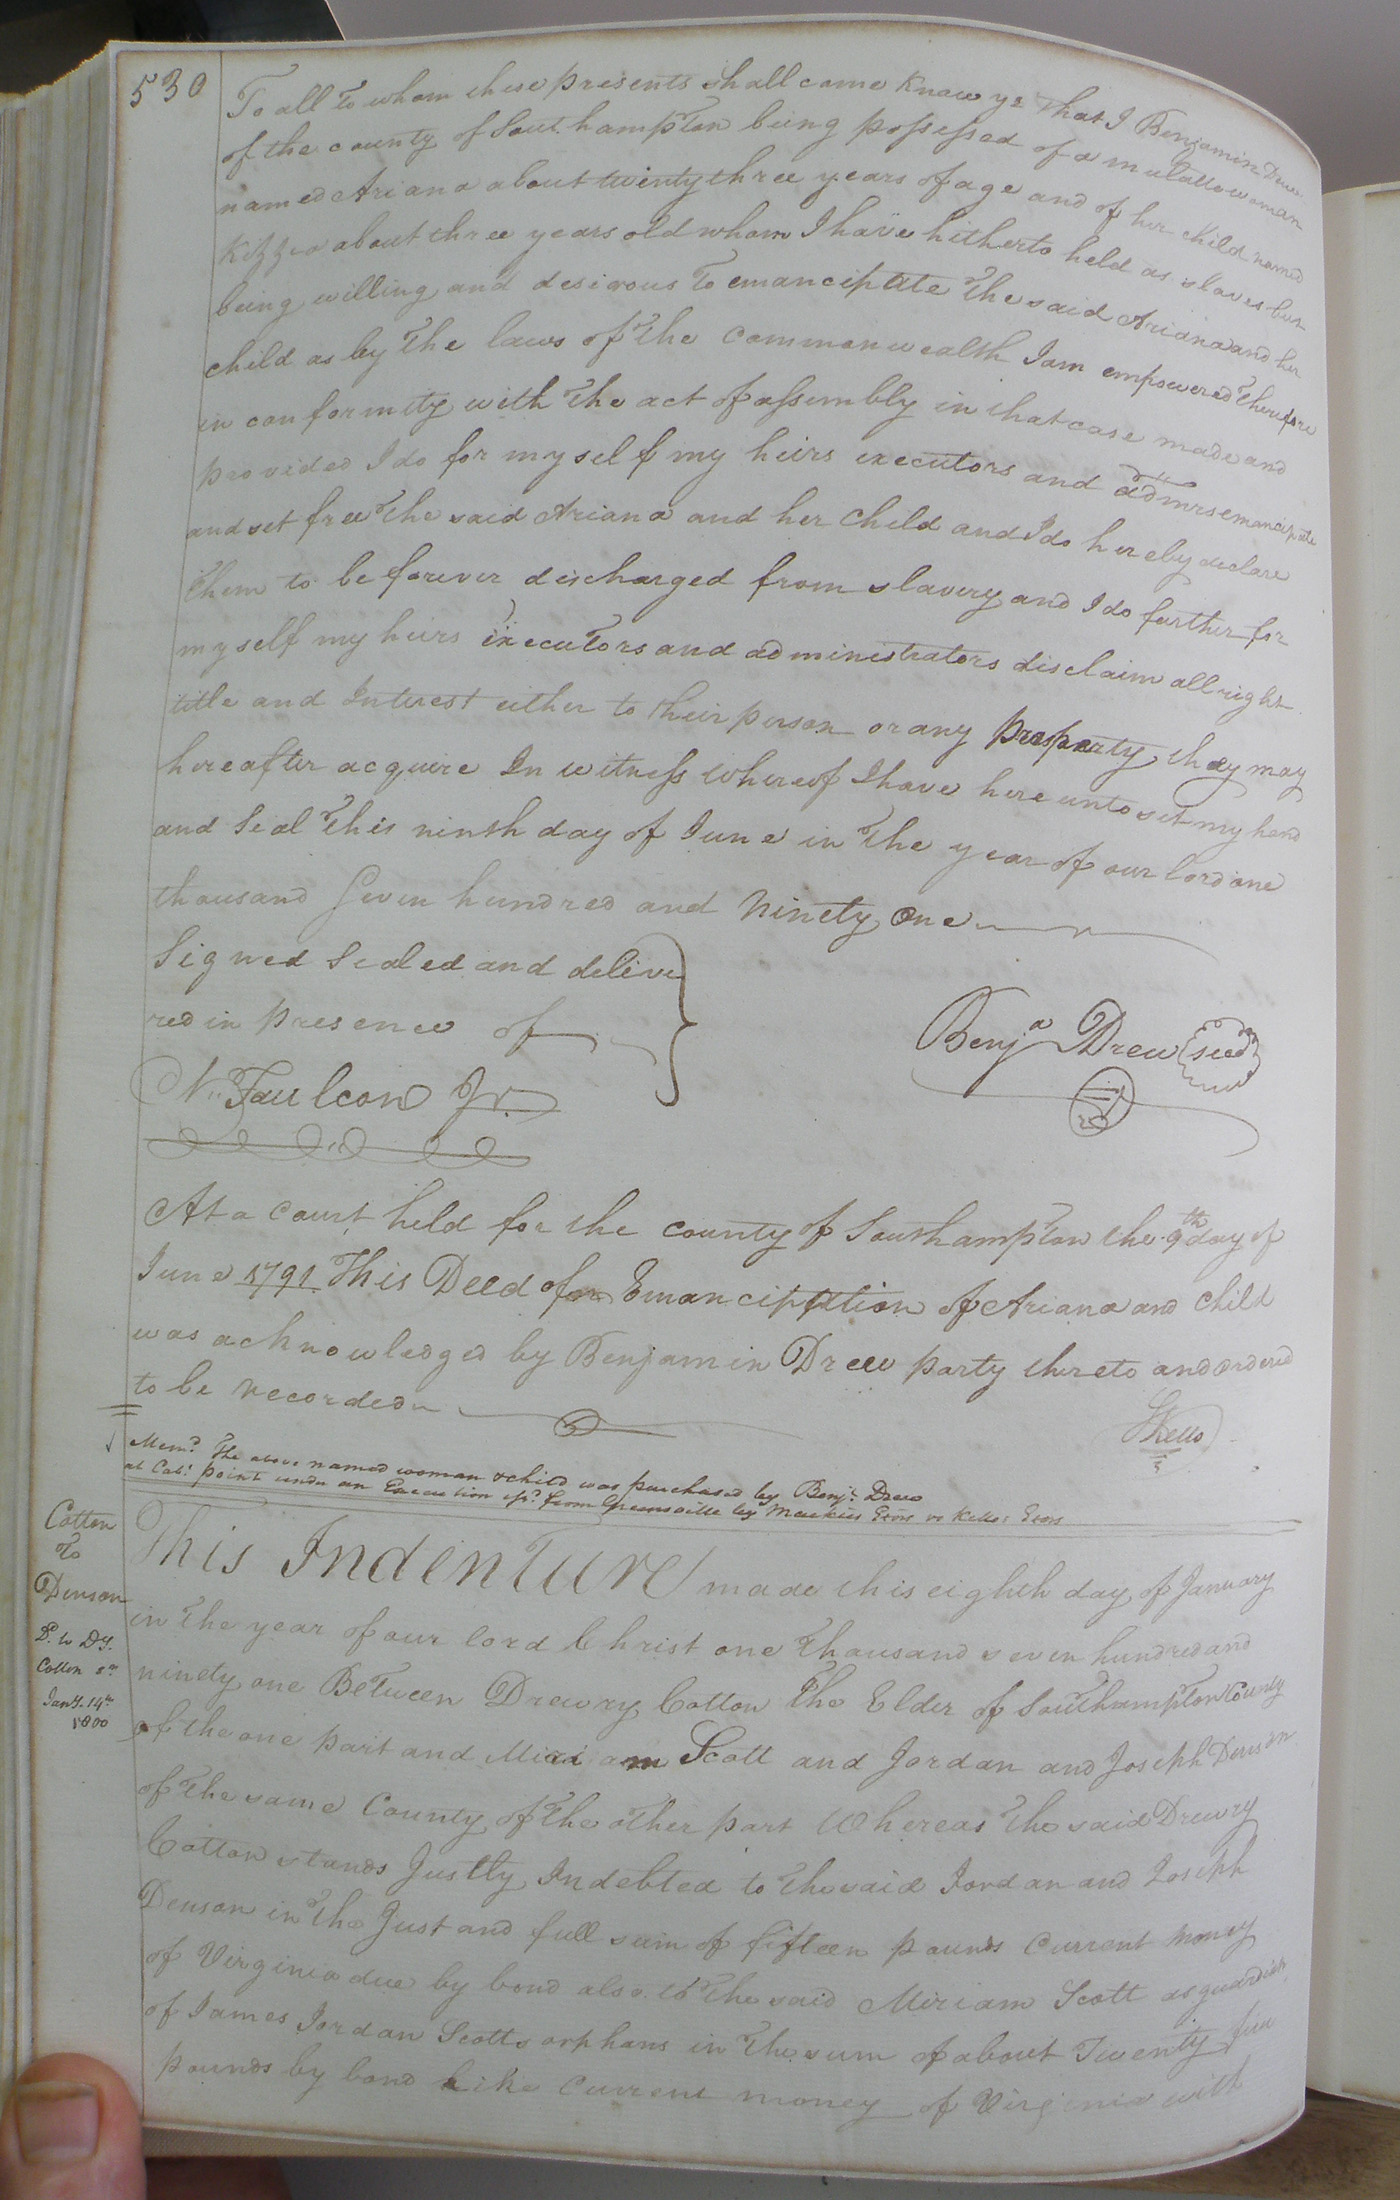 530
To all to whom these presents shall come Know ye that I Benjamin Drew
of the county of Southampton being possessed of a mulattoe woman
named Ariana about twenty three years of age and of her child named
Kizzia about three years old whom I have hitherto held as slaves but
being willing and desirous to emancipate the said Ariana and her
child as by the laws of the commonwealth I am empowered therefore
in conformity with the act of assembly in that case made and
provided I do for myself my heirs executors and admrs emancipate
and set free the said Ariana and her child and I do hereby declare
them to be forever discharged from slavery and I do further for
myself my heirs executors and administrators disclaim all right
title and Interest either to their person or any property they may
hereafter acquire In witness whereof I have hereunto set my hand
and Seal this ninth day of June in the year of our lord one
thousand Seven hundred and Ninety One
Signed Sealed and delive
red in presence of
N. Faulcon Jr.
Benja Drew seal
At a Court held for the county of Southampton the 9th day of
June 1791. This Deed of Emancipation of Ariana and Child
was acknowledged by Benjamin Drew party thereto and ordered
to be recorded
Memd. The above named woman & child was purchased by Benjn. Drew
at Cabi. point under an Execution from Greensville by Mackies Exors vs Kellos Exors
Cotton
to
Denson
D. to Dy.
Cotton sr
Jany. 14th
1800
This Indenture made this eighth day of January
in the year of our lord Christ one thousand seven hundred and
ninety one Between Drewry Cotton the Elder of Southampton County
of the one part and Miriam Scott and Jordan and Joseph Denson
of the same County of the other part Whereas the said Drewry
Cotton stands Justly Indebted to the said Jordan and Joseph
Denson in the Just and full sum of fifteen pounds Current money
of Virginia due by bond also to the said Miriam Scott as guardian
of James Jordan Scotts orphans in the sum of about Twenty five
pounds by bond like Current money of Virginia with